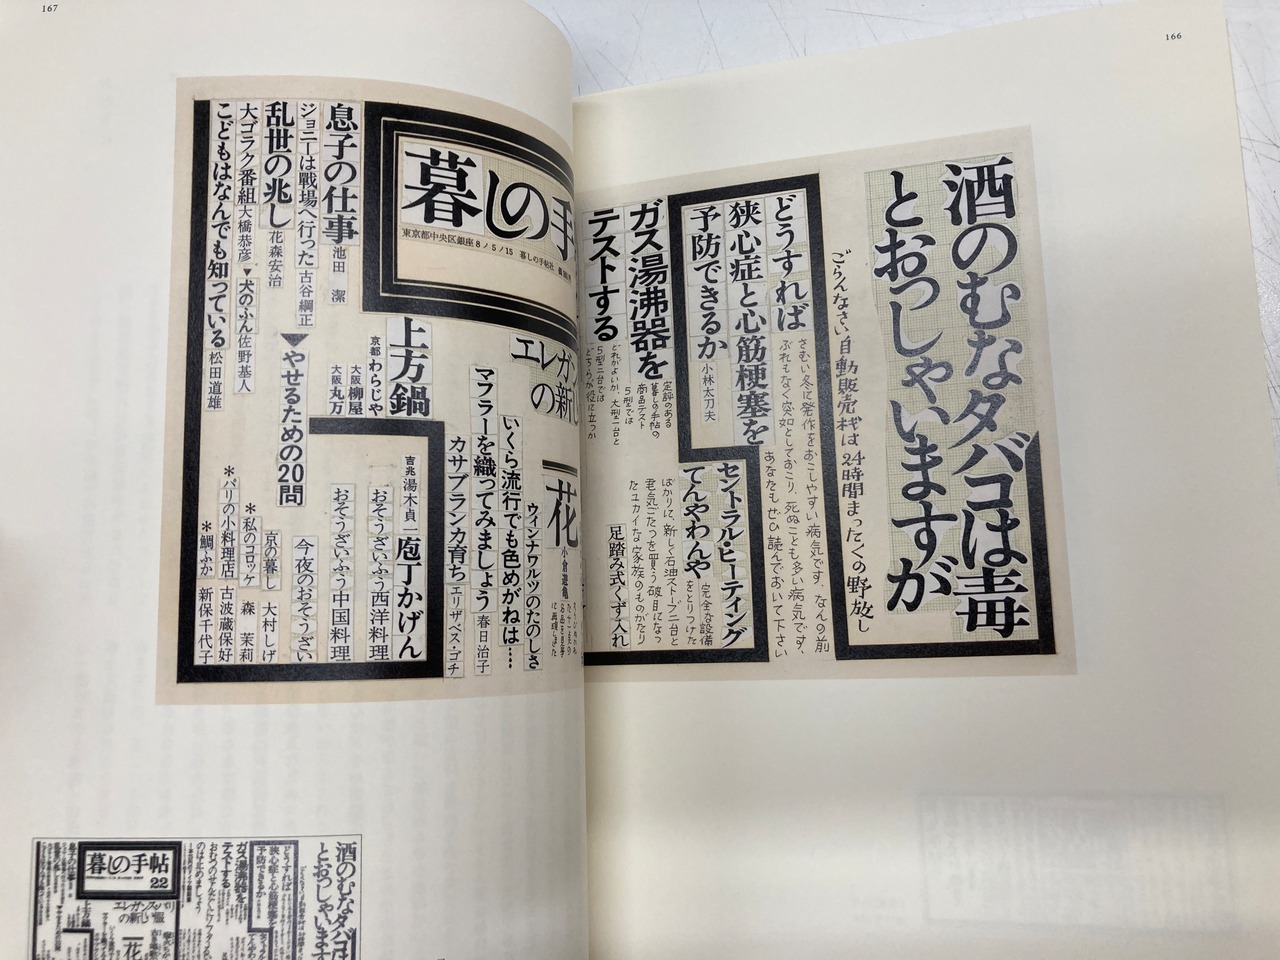 166
酒のむなタバコは毒
とおっしゃいますが
ごらんなさい自動販売機は24時間まったくの野放し
どうすれば
狭心症と心筋梗塞を
予防できるか
小林太刀夫
さむい冬に発作をおこしやすい病気です、なんの前
ぶれもなく突如としておこり、死ぬことも多い病気です、
あなたもぜひ読んでおいて下さい
ガス湯沸器を
テストする
定評のある
暮しの手帖の
商品テスト
5型では
どれがよいか、大型一台と
5型二台では
どちらが役に立つか
セントラル・ヒーティング
てんやわんや
完全な設備
をとりつけた
ばかりに、新しく石油ストーブ二台と
君気ごたつを買う破目になっ
たユカイな家族のものがたり
足踏み式くず入れ
167
暮しの手
東京都中央区銀座8ノ5ノ15 暮しの手帖社
エレガン
の新し
花
小倉遊亀
ウィンナワルツのたのしさ
いくら流行でも色めがねは……
マフラーを織ってみましょう 春日治子
カサブランカ育ち エリザベス・ゴチ
上方鍋
京都 わらじや
大阪 柳屋
大阪 丸万
吉兆 湯木貞一 庖丁かげん
おそうざいふう西洋料理
おそうざいふう中国料理
今夜のおそうざい
息子の仕事 池田 潔
ジョニーは戦場へ行った 古谷綱正
乱世の兆し 花森安治
▼やせるための20問
大ゴラク番組 大橋恭彦 ▼犬のふん 佐野基人
こどもはなんでも知っている 松田道雄
京の暮し 大村しげ
*私のコロッケ 森 茉莉
*パリの小料理店 古波蔵保好
*鯛ふか 新保千代子
酒のむなタバコは
とおっしゃいます
どうすれば
狭心症と心筋梗塞を
予防できるか
ガス湯沸器を
テストする
暮しの手帖
22
エレガンス・パリ
の新しい服
花
上方鍋
息子の仕事